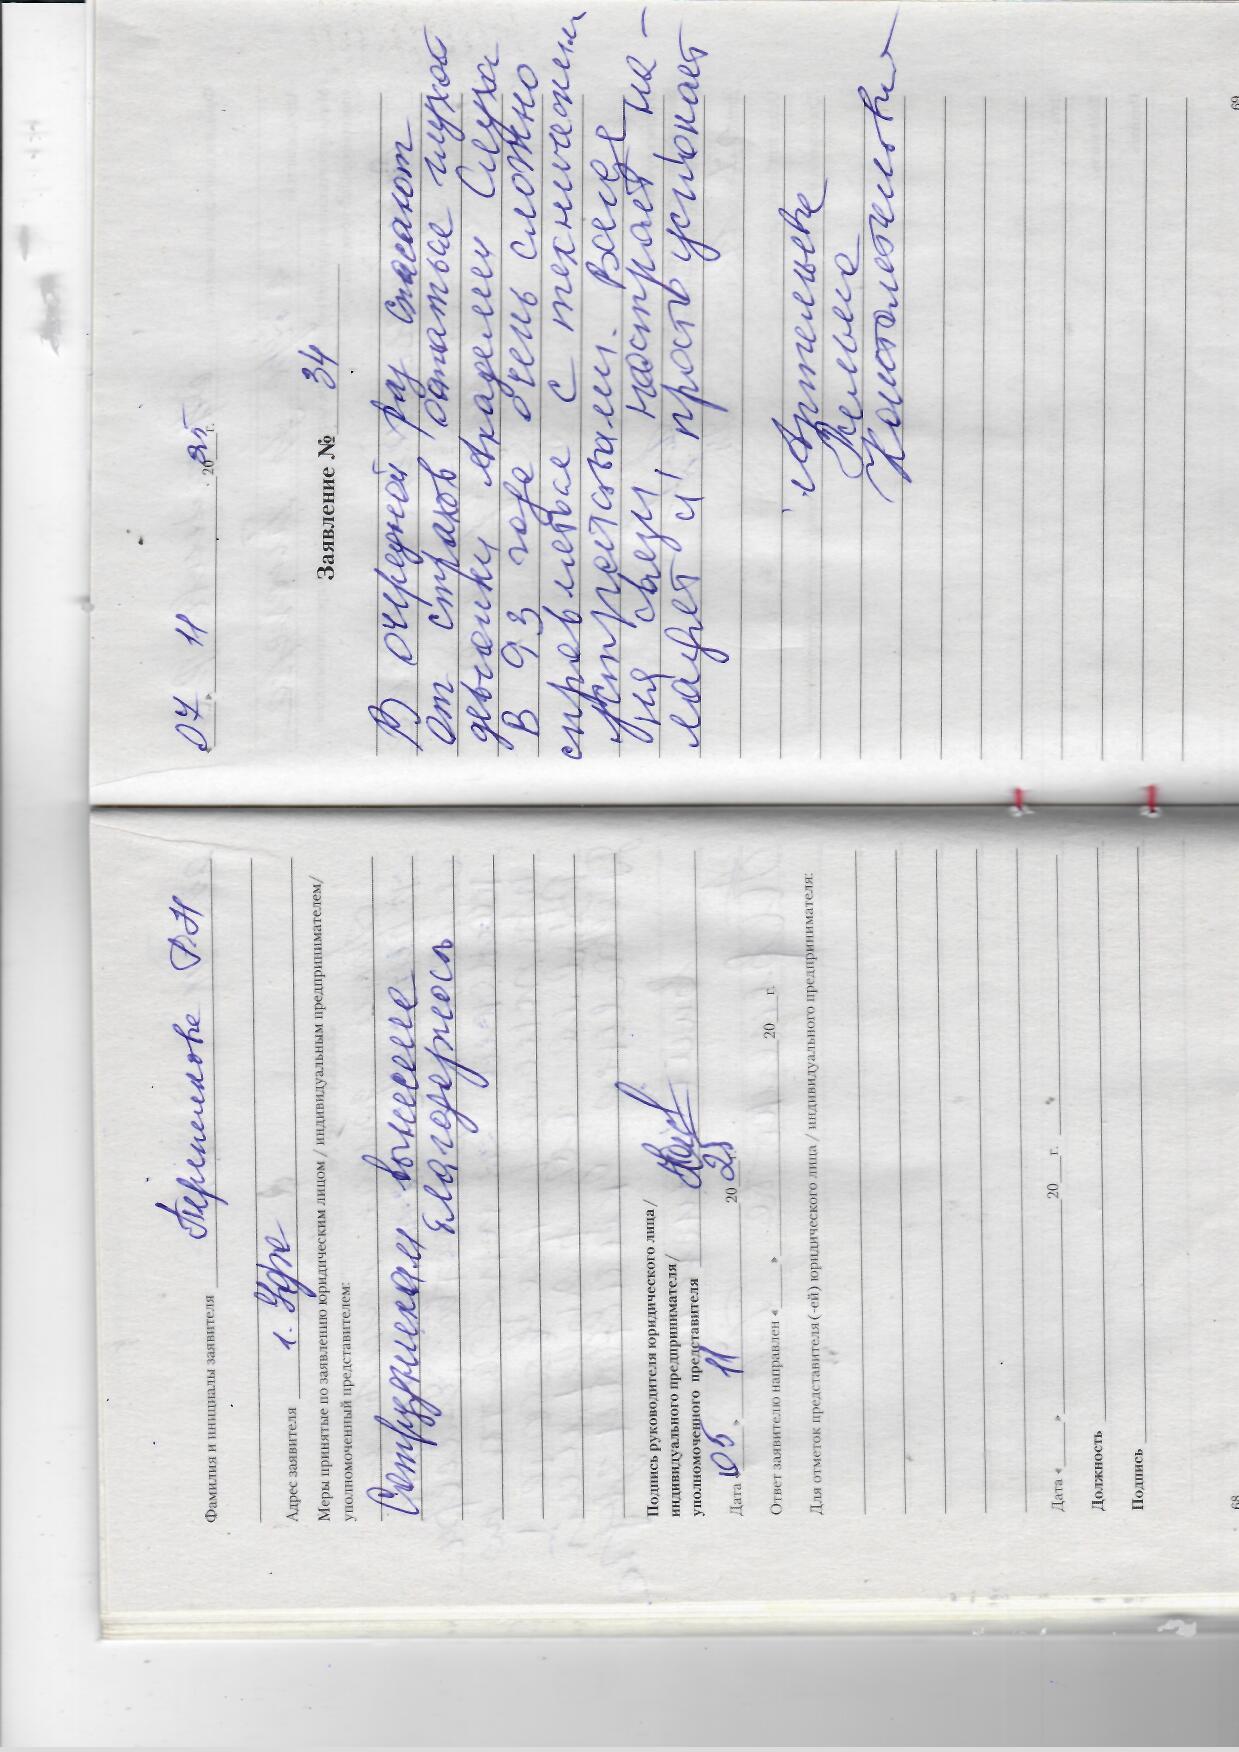 Фамилия и инициалы заявителя Перепелкова Р Н
Адрес заявителя г. Уфа
Меры принятые по заявлению юридическим лицом / индивидуальным предпринимателем/
уполномоченный представителем:
Сотрудникам вынесена
благодарность
Подпись руководителя юридического лица/
индивидуального предпринимателя/
уполномоченного представителя
Дата « 05 » 11 20 25
Ответ заявителю направлен « » 20 г.
Для отметок представителя (-ей) юридического лица / индивидуального предпринимателя:
Дата « » 20 г.
Должность
Подпись
68
« 07 » 11 20 25 г.
Заявление № 34
В очередной раз спасают
от страхов остаться глухой
девочки Академии Слуха
В 93 года очень сложно
справляться с техническими
устройствами. Всегда
на связи, настраивает на-
ладит и просто успокает
69